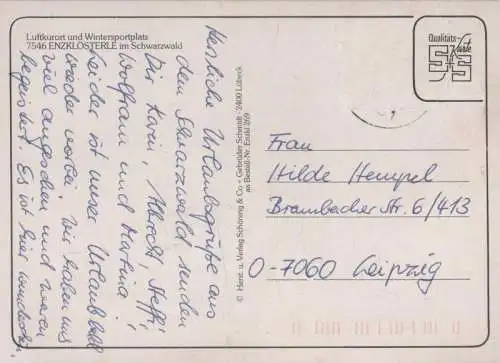 Luftkurort und Wintersportplatz
7546 ENZKLÖSTERLE im Schwarzwald
Herzliche Urlaubsgrüße aus
dem Schwarzwald senden
Dir Karin, Albrecht, Steffi,
Wolfram und Martina!
Leider ist unser Urlaub bald
wieder vorbei. Wir haben uns
viel angesehen und waren
begeistert. Es ist hier wunderschön
© Herst. u. Verlag Schöning & Co · Gebrüder Schmidt · 2400 Lübeck
Qualitäts-
Karte
Frau
Hilde Hempel
Brambacher Str. 6/413
O-7060 Leipzig